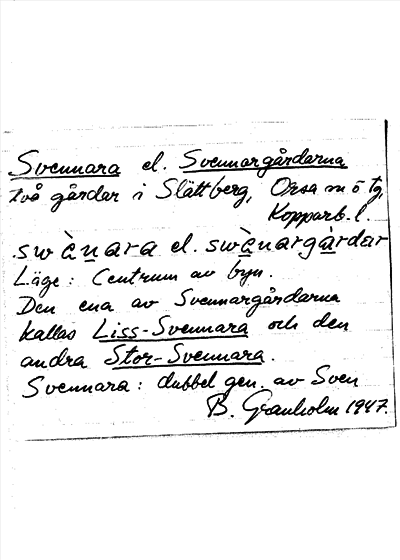 Svennara el. Svennargårdarna
två gårdar i Slättberg, Orsa m o tg,
Kopparb. l.
swànara el. swànargàrdar
Läge: Centrum av byn.
Den ena av Svennargårdarna
kallas Liss-Svennara och den
andra Stor-Svennara.
Svennara: dubbel gen. av Sven
B. Granholm 1947.